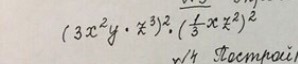 (3x²y · z³)² · (⅓xz²)²
№4 Построй